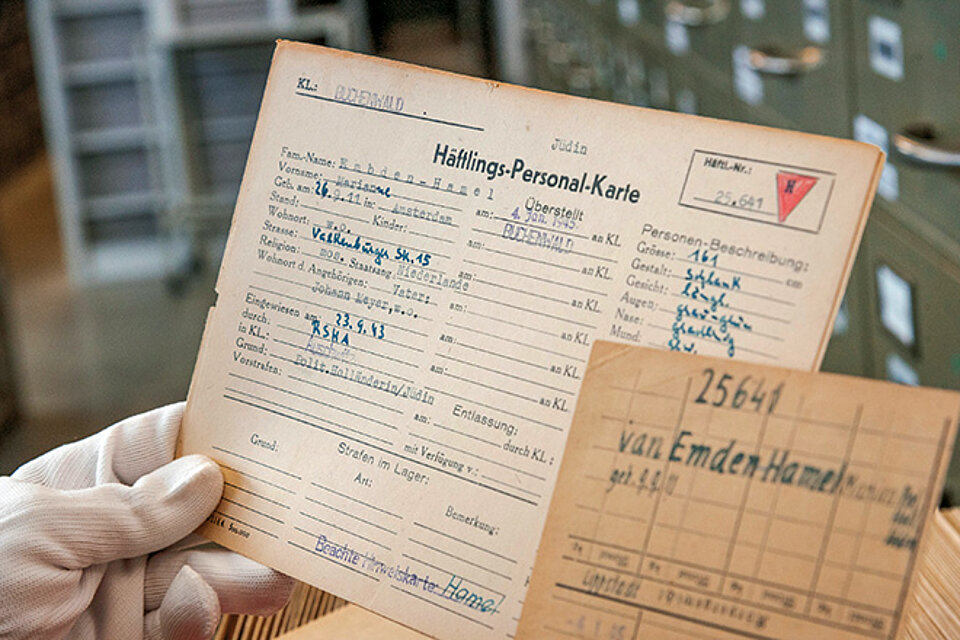 KL.: BUCHENWALD
Jüdin
Häftlings-Personal-Karte
Häftl.-Nr.:
25.641
H
Fam.-Name: Embden-Hamel
Vorname: Marianne
Geb. am: 26.9.11 in: Amsterdam
Stand: Kinder:
Wohnort: w.o.
Strasse: Valkenburger Str. 15
Religion: mos. Staatsang. Niederlande
Wohnort d. Angehörigen: Vater:
Johann Meyer, w.o.
Eingewiesen am: 23.9.43
durch: RSHA
in KL.: Auschwitz
Grund: Polit. Holländerin/Jüdin
Vorstrafen:
Überstellt
am: 4. Jan. 1945 an KL.
BUCHENWALD
am: an KL.
am: an KL.
am: an KL.
am: an KL.
am: an KL.
Entlassung:
am: durch KL.:
mit Verfügung v.:
Personen-Beschreibung:
Grösse: 161 cm
Gestalt: schlank
Gesicht: längl.
Augen: graugrün
Nase:
Mund:
Strafen im Lager:
Grund: Art: Bemerkung:
Beachte Hinweiskarte Hamel
25641
van Emden-Hamel
geb.
Lippstadt